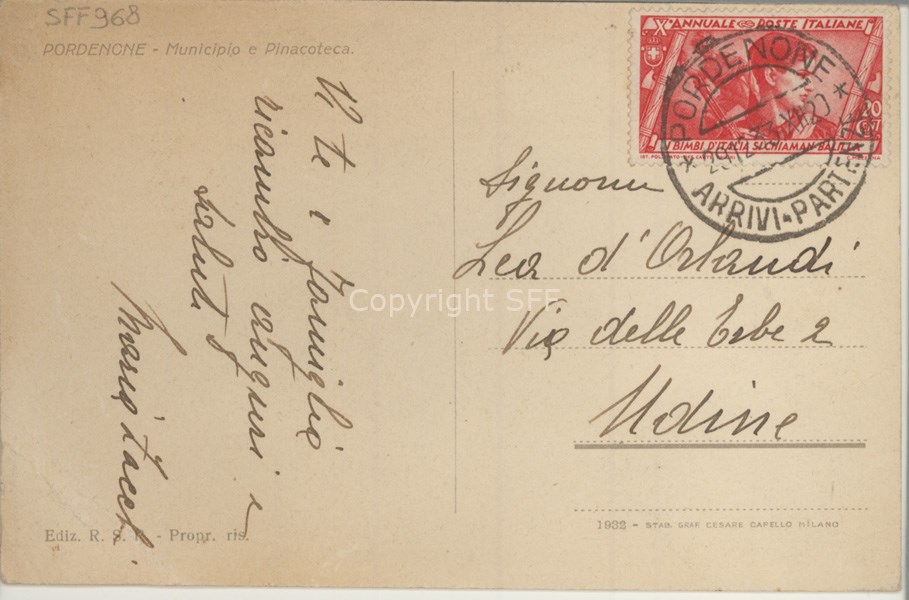 SFF968
PORDENONE - Municipio e Pinacoteca.
X ANNUALE POSTE ITALIANE
20
I BIMBI D'ITALIA SI CHIAMAN BALILLA
* PORDENONE *
ARRIVI-PARTENZE
A te e famiglia
ricambio auguri e
saluti
Maria
Signorina
Lea d'Orlandi
Via delle Erbe 2
Udine
Copyright SFF
Ediz. R. S. - Propr. ris.
1932 - STAB. GRAF. CESARE CAPELLO MILANO